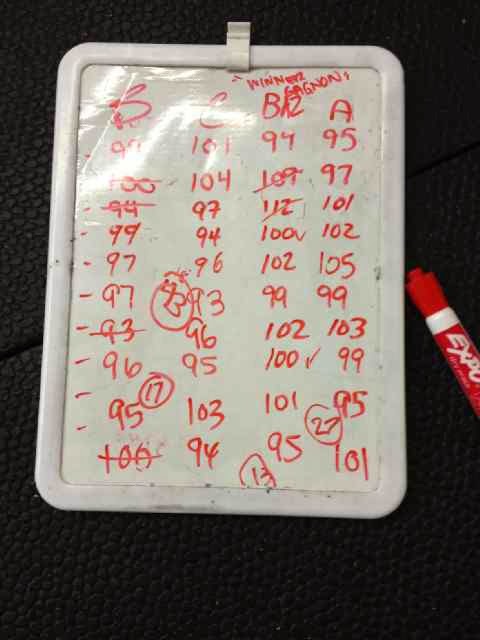 WINNER
GAGNON:
B C BR2 A
99 101 94 95
100 104 109 97
94 97 112 101
99 94 100 102
97 96 102 105
97 93 99 99
93 96 102 103
96 95 100 99
17
95 103 101 95
27
100 94 95 101
13
EXPO